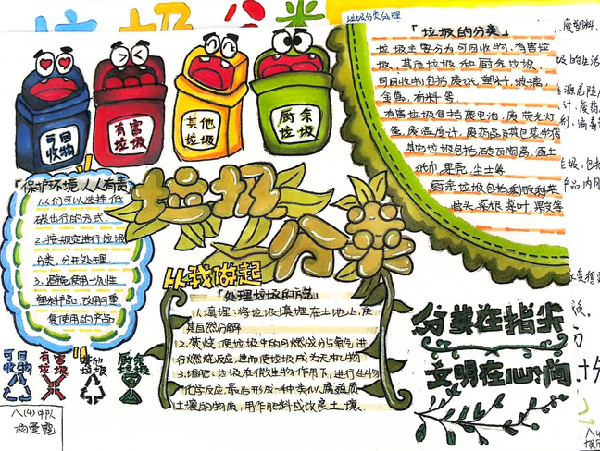 垃圾分类
垃圾分类处理
「垃圾的分类」
垃圾主要分为可回收物、有害垃
圾、其他垃圾和厨余垃圾
可回收物包括废纸、塑料、玻璃、
金属、布料等
有害垃圾包括废电池、废荧光灯
管、废温度计、废药品及其包装物等
其他垃圾包括砖瓦陶瓷、渣土
纸巾、果壳、尘土等
厨余垃圾包括剩饭剩菜
骨头、菜根、菜叶、果皮等
可回
收物
有害
垃圾
其他
垃圾
厨余
垃圾
「保护环境,人人有责」
1.人们可以选择低
碳出行的方式
2.按规定进行垃圾
分类,分开处理
3.避免使用一次性
塑料制品,改用可重
复使用的产品
垃圾分类
从我做起
「处理垃圾的方法」
1.填埋:将垃圾填埋在土地上,在
其自然分解
2.焚烧:使垃圾中的可燃成分与氧气进
行燃烧反应,进而使垃圾成为无机物
3.堆肥:垃圾在微生物作用下,进行生物
化学反应,最后形成一种类似腐殖质
土壤的物质,用作肥料或改良土壤
分类在指尖
文明在心间
可回
收物
有害
垃圾
其他
垃圾
厨余
垃圾
八(4)中队